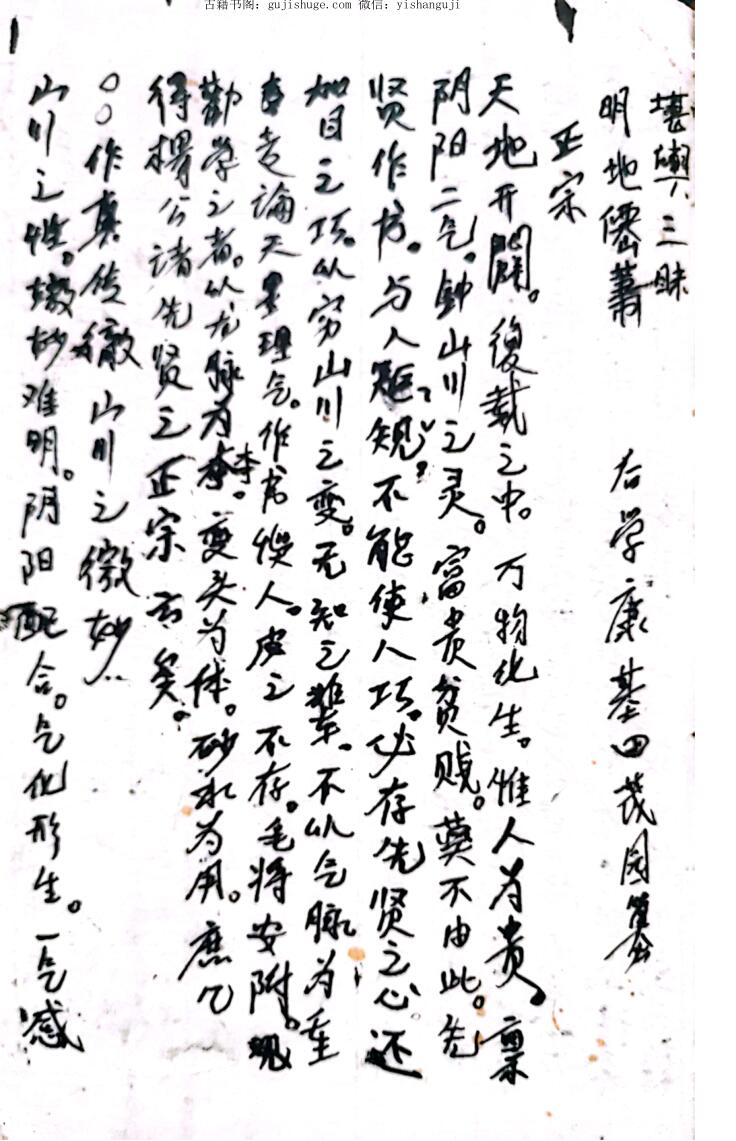 古籍书阁：gujishuge.com 微信：yishanguji
堪舆三昧
明地僊萧 右学康基田茂园纂
正宗
天地开闢。復载之中。万物化生。惟人为贵。禀
阴阳二气。钟山川之灵。富贵贫贱。莫不由此。先
贤作书。与人规矩。不能使人巧。必存先贤之心还
如目之巧。以穷山川之变。无知之辈。不以气脉为重
专走论天星理气。作书悮人。皮之不存。毛将安附。现
勸学之者。以龙脉为本。变头为体。砂水为用。庶几
得杨公诸先贤之正宗云矣。
○○作真传徹山川之微妙
山川之性。微妙难明。阴阳配合。气化形生。一气感